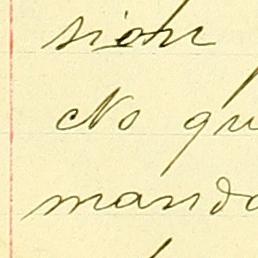 sion
No qu
mando